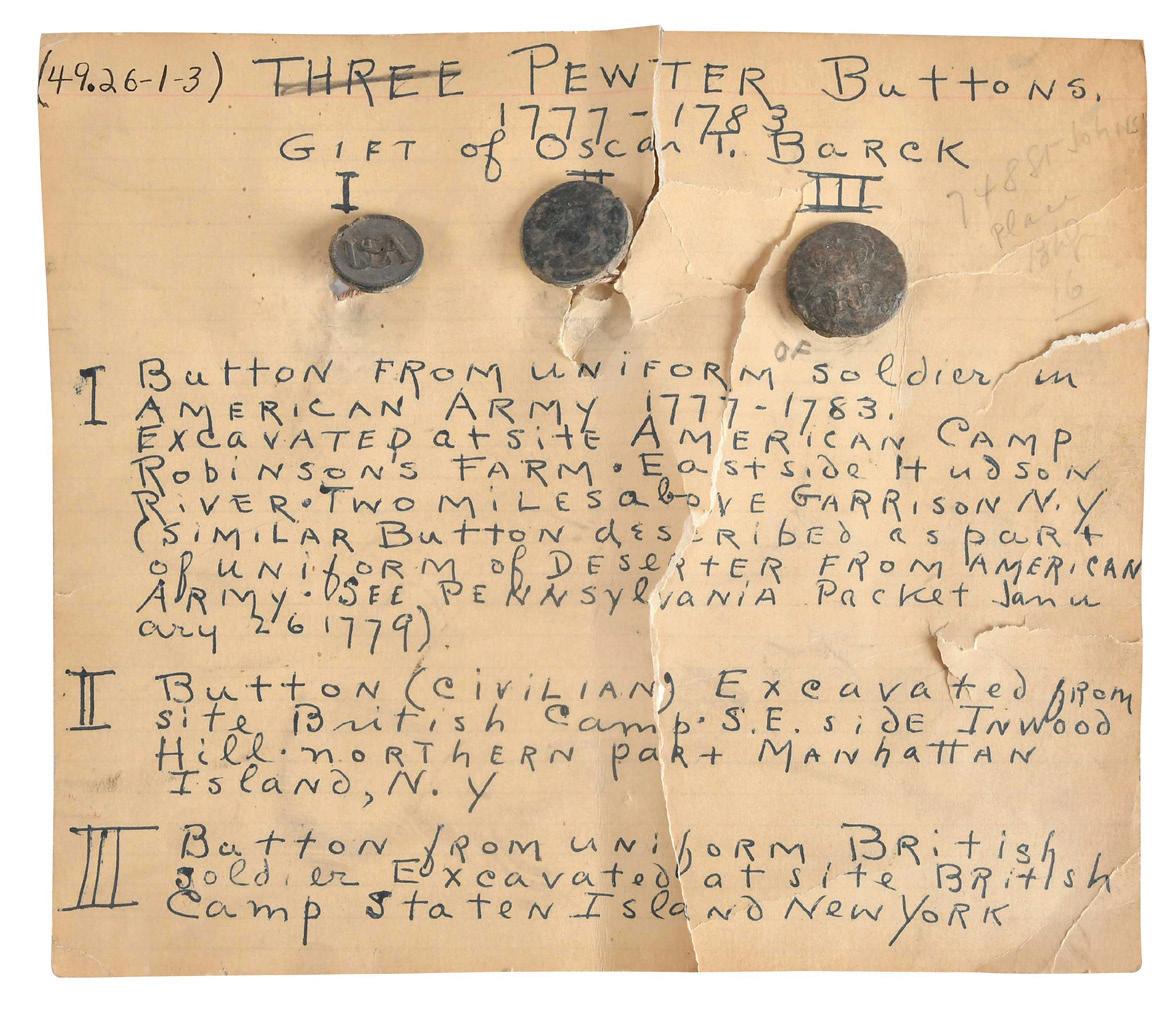 (49.26-1-3) THREE PEWTER Buttons.
1777-1783
GIFT of Oscar T. BARCK
I II III
USA
RP
OF
I Button FROM uniFORM soldier in
AMERICAN ARMY 1777-1783.
EXCAVATED at site AMERICAN CAMP
Robinson's FARM. East side Hudson
RIVER. TWO MILES above GARRISON N.Y
(SIMILAR Button described as part
of uniform of DESERTER FROM AMERICAN
ARMY. SEE PENNsylvania Packet Janu
ary 26 1779)
II Button (CiviliAN) Excavated from
site British Camp. S.E. side Inwood
Hill. noRTHERN part MANhattan
Island, N.Y
III Button from uniform British
soldier Excavated at site British
Camp Staten Island New York
748 St Johns
place
16